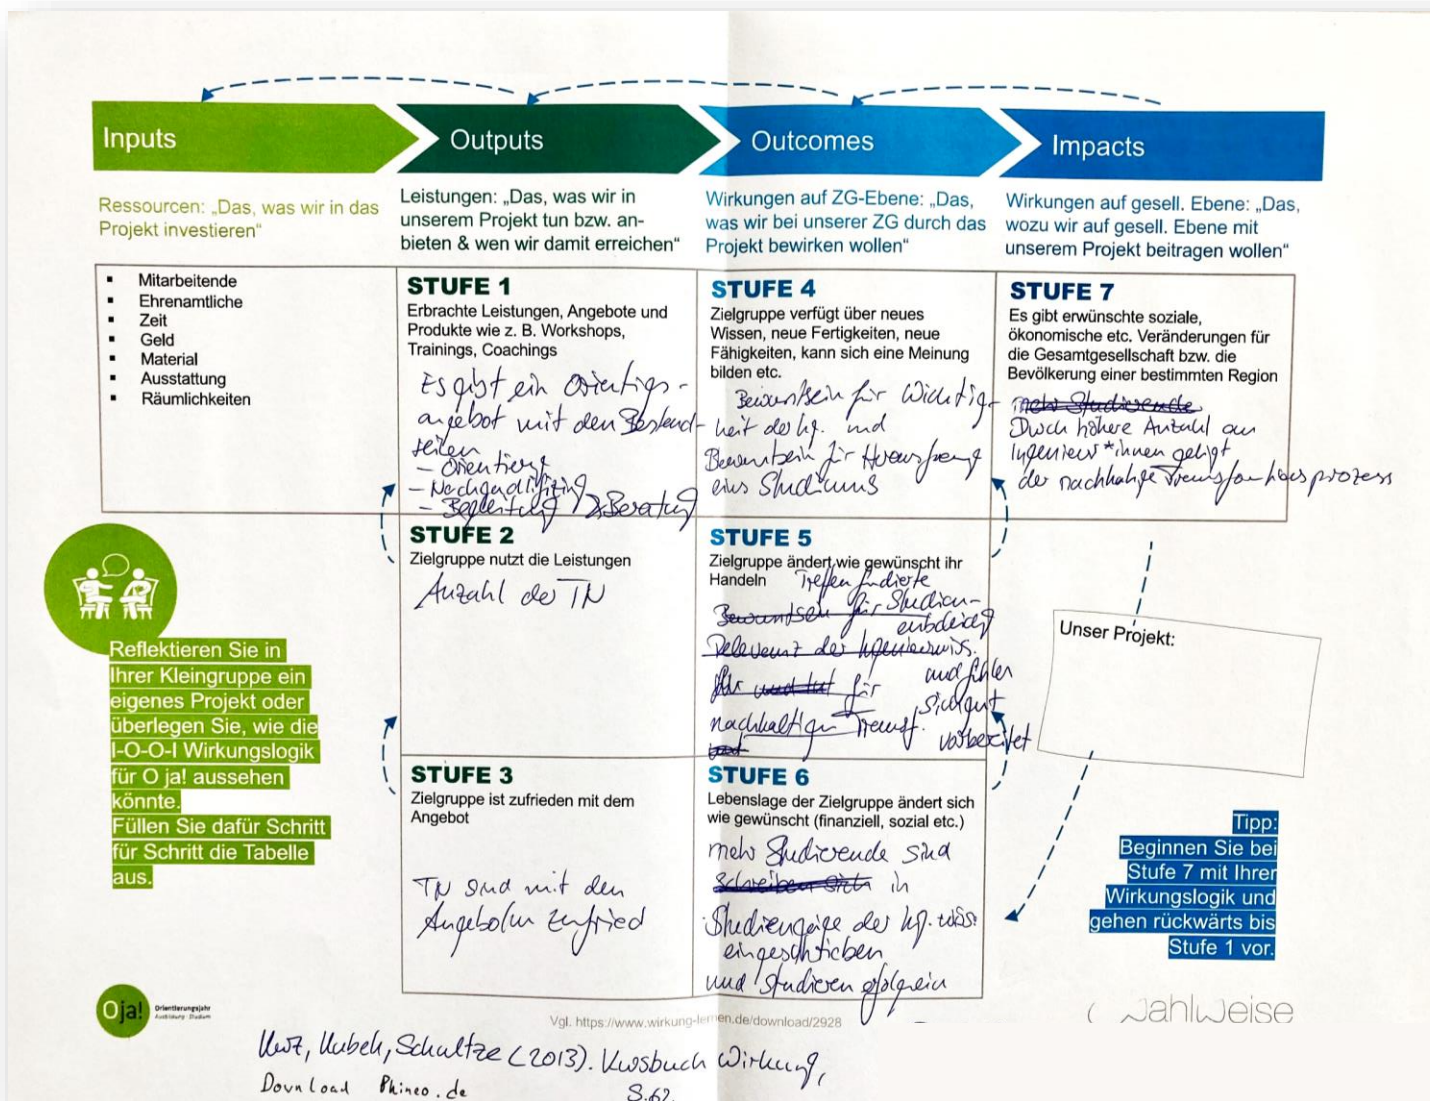 Inputs
Outputs
Outcomes
Impacts
Ressourcen: „Das, was wir in das
Projekt investieren“
Leistungen: „Das, was wir in
unserem Projekt tun bzw. an-
bieten & wen wir damit erreichen“
Wirkungen auf ZG-Ebene: „Das,
was wir bei unserer ZG durch das
Projekt bewirken wollen“
Wirkungen auf gesell. Ebene: „Das,
wozu wir auf gesell. Ebene mit
unserem Projekt beitragen wollen“
Mitarbeitende
Ehrenamtliche
Zeit
Geld
Material
Ausstattung
Räumlichkeiten
STUFE 1
Erbrachte Leistungen, Angebote und
Produkte wie z. B. Workshops,
Trainings, Coachings
Es gibt ein
angebot mit den Bestand-
teilen
- Begleitung Beratung
STUFE 2
Zielgruppe nutzt die Leistungen
Anzahl der TN
STUFE 3
Zielgruppe ist zufrieden mit dem
Angebot
TN sind mit den
STUFE 4
Zielgruppe verfügt über neues
Wissen, neue Fertigkeiten, neue
Fähigkeiten, kann sich eine Meinung
bilden etc.
für Wichtig-
keit der Ig. und
für
eins Studiums
STUFE 5
Zielgruppe ändert wie gewünscht ihr
Handeln
Treffen fundierte
für Studien-
Relevanz der
und fühlen
für
sich gut
nachhaltigen Transf.
vorbereitet
STUFE 6
Lebenslage der Zielgruppe ändert sich
wie gewünscht (finanziell, sozial etc.)
mehr Studierende sind
Schreiben sich in
Studiengänge der
eingeschrieben
und studieren
STUFE 7
Es gibt erwünschte soziale,
ökonomische etc. Veränderungen für
die Gesamtgesellschaft bzw. die
Bevölkerung einer bestimmten Region
mehr Studierende
Durch höhere Anzahl an
Ingenieur*innen gelingt
der nachhaltige Transformationsprozess
Reflektieren Sie in
Ihrer Kleingruppe ein
eigenes Projekt oder
überlegen Sie, wie die
I-O-O-I Wirkungslogik
für O ja! aussehen
könnte.
Füllen Sie dafür Schritt
für Schritt die Tabelle
aus.
Unser Projekt:
Tipp:
Beginnen Sie bei
Stufe 7 mit Ihrer
Wirkungslogik und
gehen rückwärts bis
Stufe 1 vor.
O ja!
Orientierungsjahr
Ausbildung · Studium
Vgl. https://www.wirkung-lernen.de/download/2928
wahlweise
Kurz, Kubek, Schultze (2013). Kursbuch Wirkung,
Download Phineo.de
S.62.